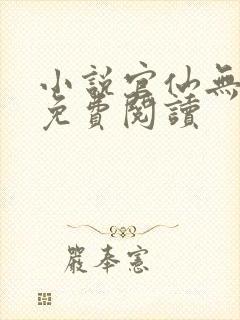 小說官仙無
免費閱讀
嚴奉憲